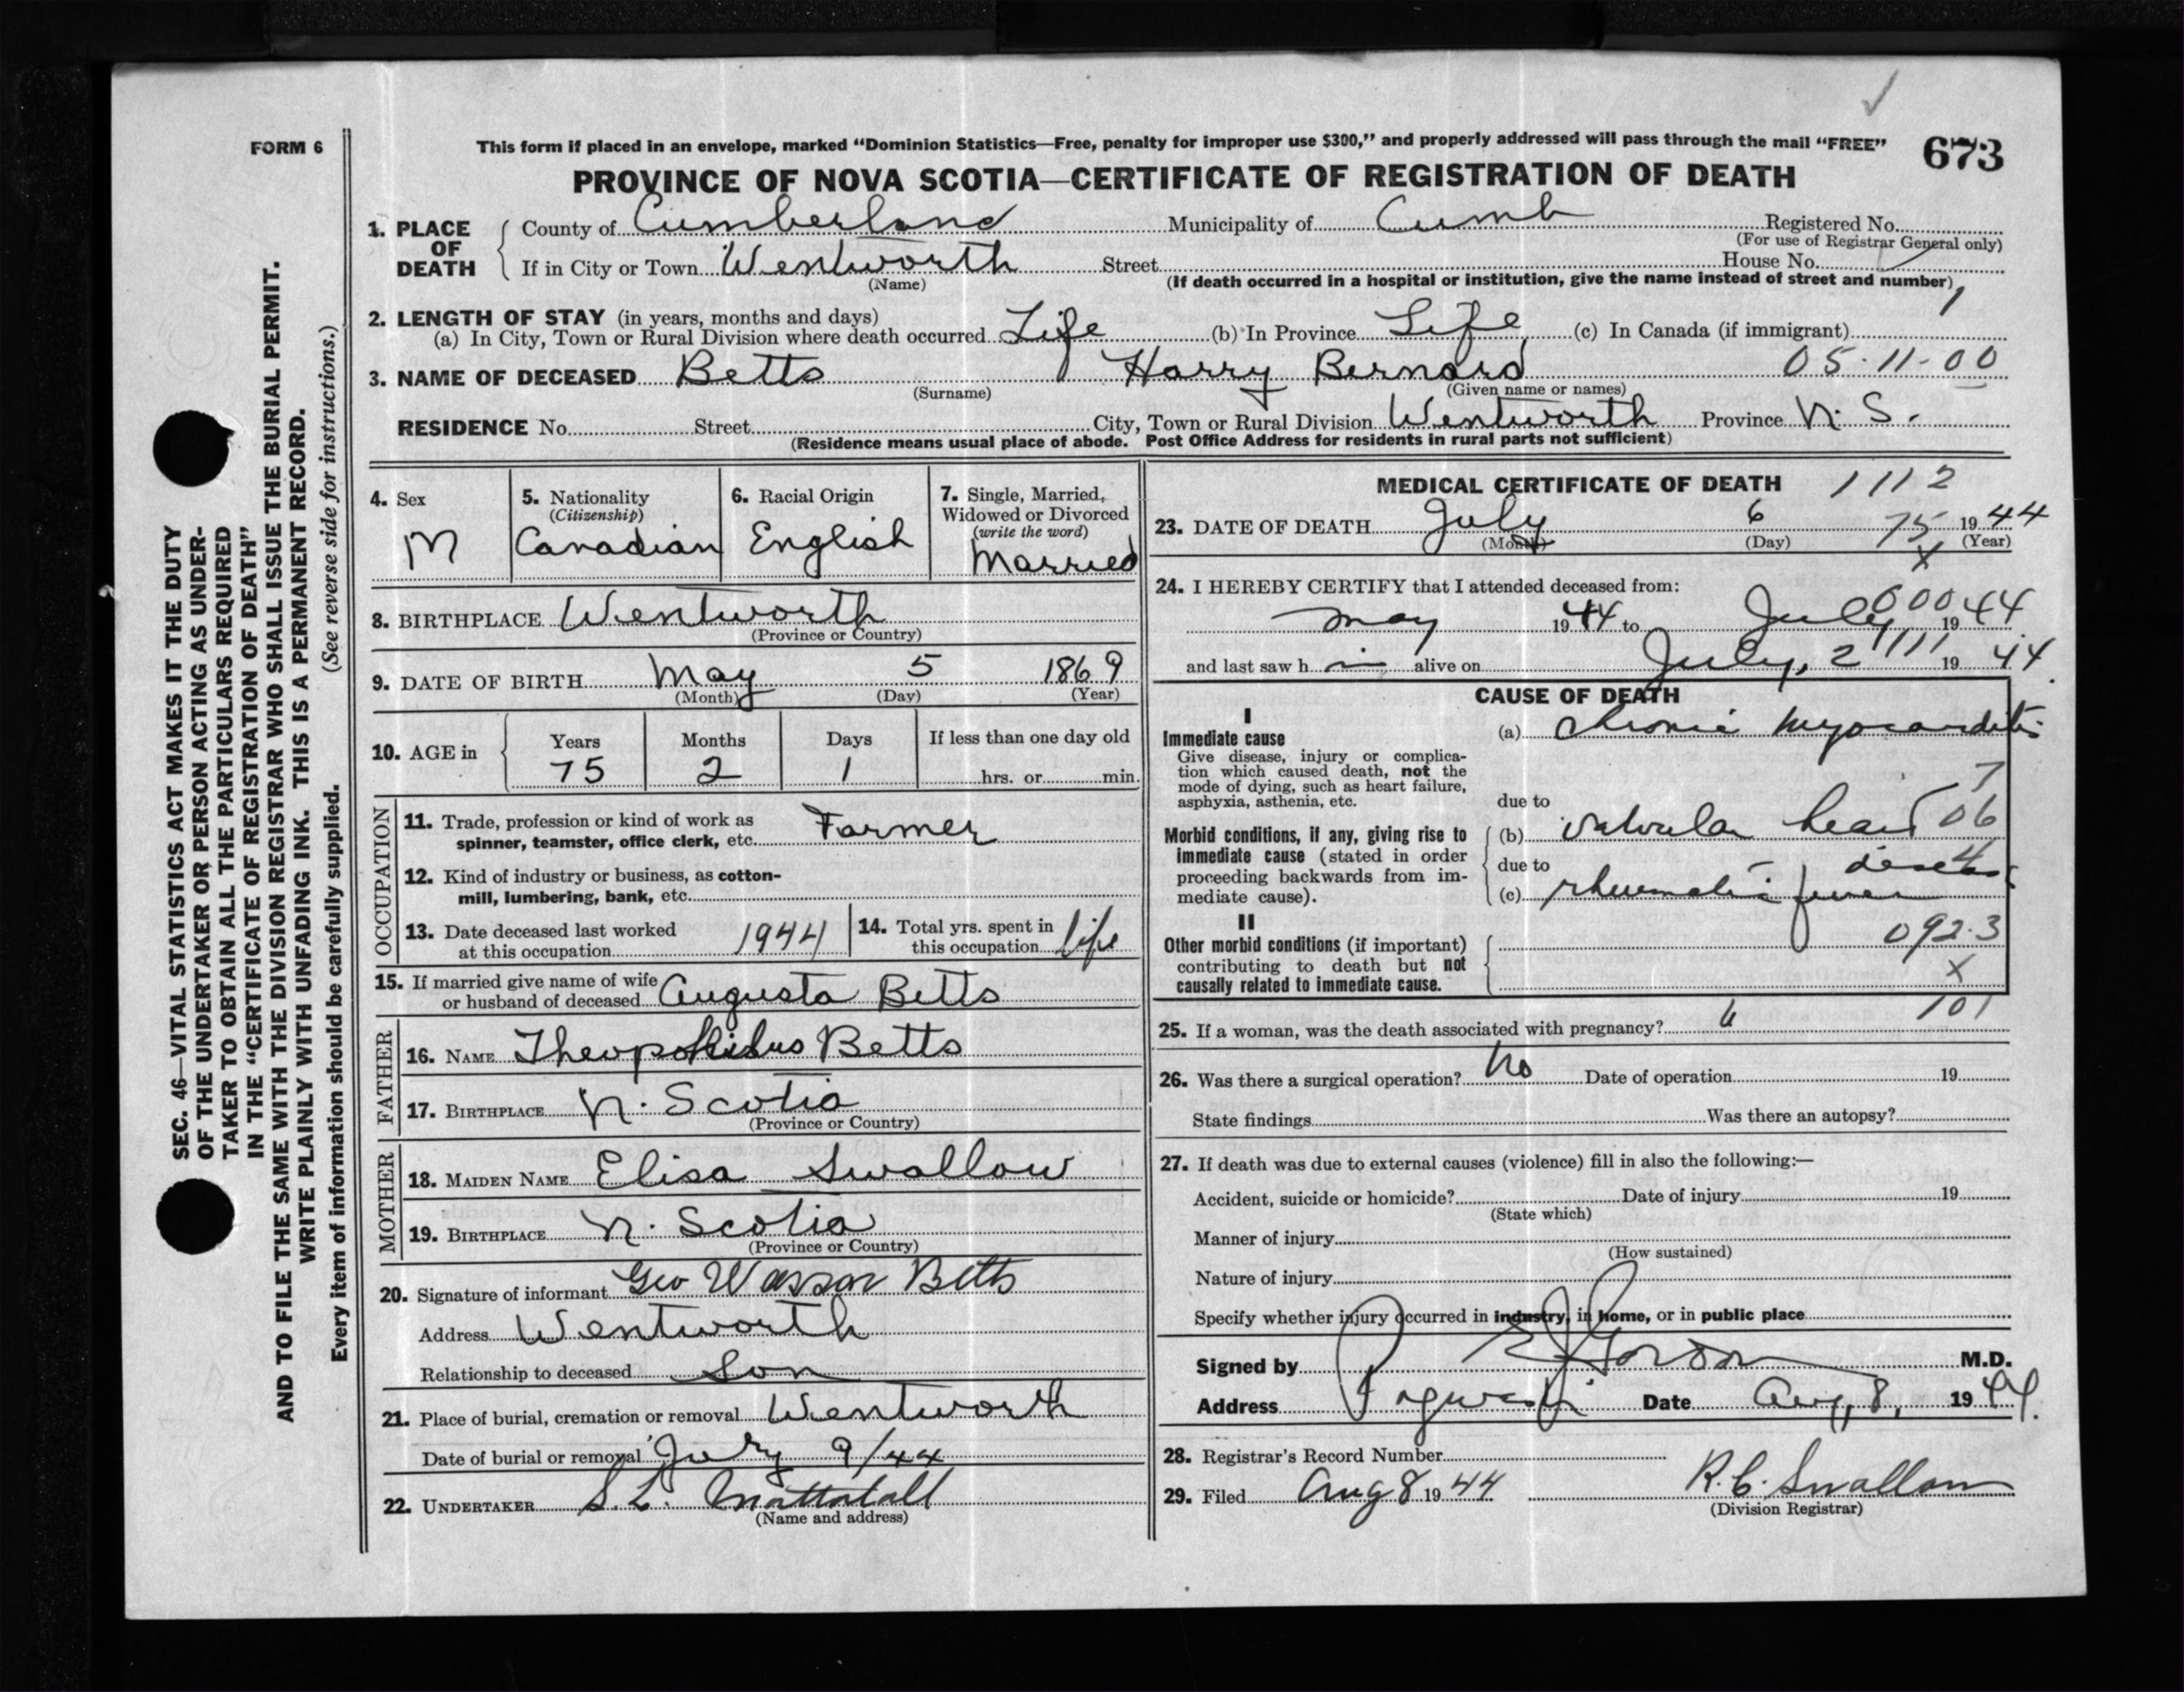 FORM 6
This form if placed in an envelope, marked "Dominion Statistics—Free, penalty for improper use $300," and properly addressed will pass through the mail "FREE"
673
PROVINCE OF NOVA SCOTIA—CERTIFICATE OF REGISTRATION OF DEATH
1. PLACE OF DEATH
County of Cumberland Municipality of Cumb Registered No.
(For use of Registrar General only)
If in City or Town Wentworth Street House No.
(Name) (If death occurred in a hospital or institution, give the name instead of street and number)
2. LENGTH OF STAY (in years, months and days)
(a) In City, Town or Rural Division where death occurred Life (b) In Province Life (c) In Canada (if immigrant)
3. NAME OF DECEASED Betts Harry Bernard 05-11-00
(Surname) (Given name or names)
RESIDENCE No. Street City, Town or Rural Division Wentworth Province N. S.
(Residence means usual place of abode. Post Office Address for residents in rural parts not sufficient)
4. Sex
M
5. Nationality
(Citizenship)
Canadian
6. Racial Origin
English
7. Single, Married, Widowed or Divorced
(write the word)
Married
8. BIRTHPLACE Wentworth
(Province or Country)
9. DATE OF BIRTH May 5 1869
(Month) (Day) (Year)
10. AGE in Years Months Days If less than one day old
75 2 1 hrs. or min.
OCCUPATION
11. Trade, profession or kind of work as
spinner, teamster, office clerk, etc. Farmer
12. Kind of industry or business, as cotton-
mill, lumbering, bank, etc.
13. Date deceased last worked
at this occupation 1944
14. Total yrs. spent in
this occupation life
15. If married give name of wife
or husband of deceased Augusta Betts
FATHER
16. NAME Betts
17. BIRTHPLACE N. Scotia
(Province or Country)
MOTHER
18. MAIDEN NAME Elisa Swallow
19. BIRTHPLACE N. Scotia
(Province or Country)
20. Signature of informant Geo Wasson Betts
Address Wentworth
Relationship to deceased Son
21. Place of burial, cremation or removal Wentworth
Date of burial or removal July 9/44
22. UNDERTAKER S. L. Mattatall
(Name and address)
MEDICAL CERTIFICATE OF DEATH 1112
23. DATE OF DEATH July 6 75 1944
(Month) (Day) (Year)
X
24. I HEREBY CERTIFY that I attended deceased from:
May 1944 to July 600 1944
and last saw h im alive on July, 2 1111 1944
CAUSE OF DEATH
I
Immediate cause
Give disease, injury or complica-
tion which caused death, not the
mode of dying, such as heart failure,
asphyxia, asthenia, etc.
(a) chronic myocarditis
7
due to
Morbid conditions, if any, giving rise to
immediate cause (stated in order
proceeding backwards from im-
mediate cause).
(b) valvular heart 06
due to disease 4
(c) rheumatic fever
II
Other morbid conditions (if important)
contributing to death but not
causally related to immediate cause.
092.3
X
101
25. If a woman, was the death associated with pregnancy?
26. Was there a surgical operation? No Date of operation 19
State findings Was there an autopsy?
27. If death was due to external causes (violence) fill in also the following:—
Accident, suicide or homicide? Date of injury 19
(State which)
Manner of injury
(How sustained)
Nature of injury
Specify whether injury occurred in industry, in home, or in public place
Signed by M.D.
Address Pugwash Date Aug, 8, 1944.
28. Registrar's Record Number
29. Filed Aug 8 1944 R. C. Swallow
(Division Registrar)
SEC. 46—VITAL STATISTICS ACT MAKES IT THE DUTY
OF THE UNDERTAKER OR PERSON ACTING AS UNDER-
TAKER TO OBTAIN ALL THE PARTICULARS REQUIRED
IN THE "CERTIFICATE OF REGISTRATION OF DEATH"
AND TO FILE THE SAME WITH THE DIVISION REGISTRAR WHO SHALL ISSUE THE BURIAL PERMIT.
WRITE PLAINLY WITH UNFADING INK. THIS IS A PERMANENT RECORD.
Every item of information should be carefully supplied. (See reverse side for instructions.)